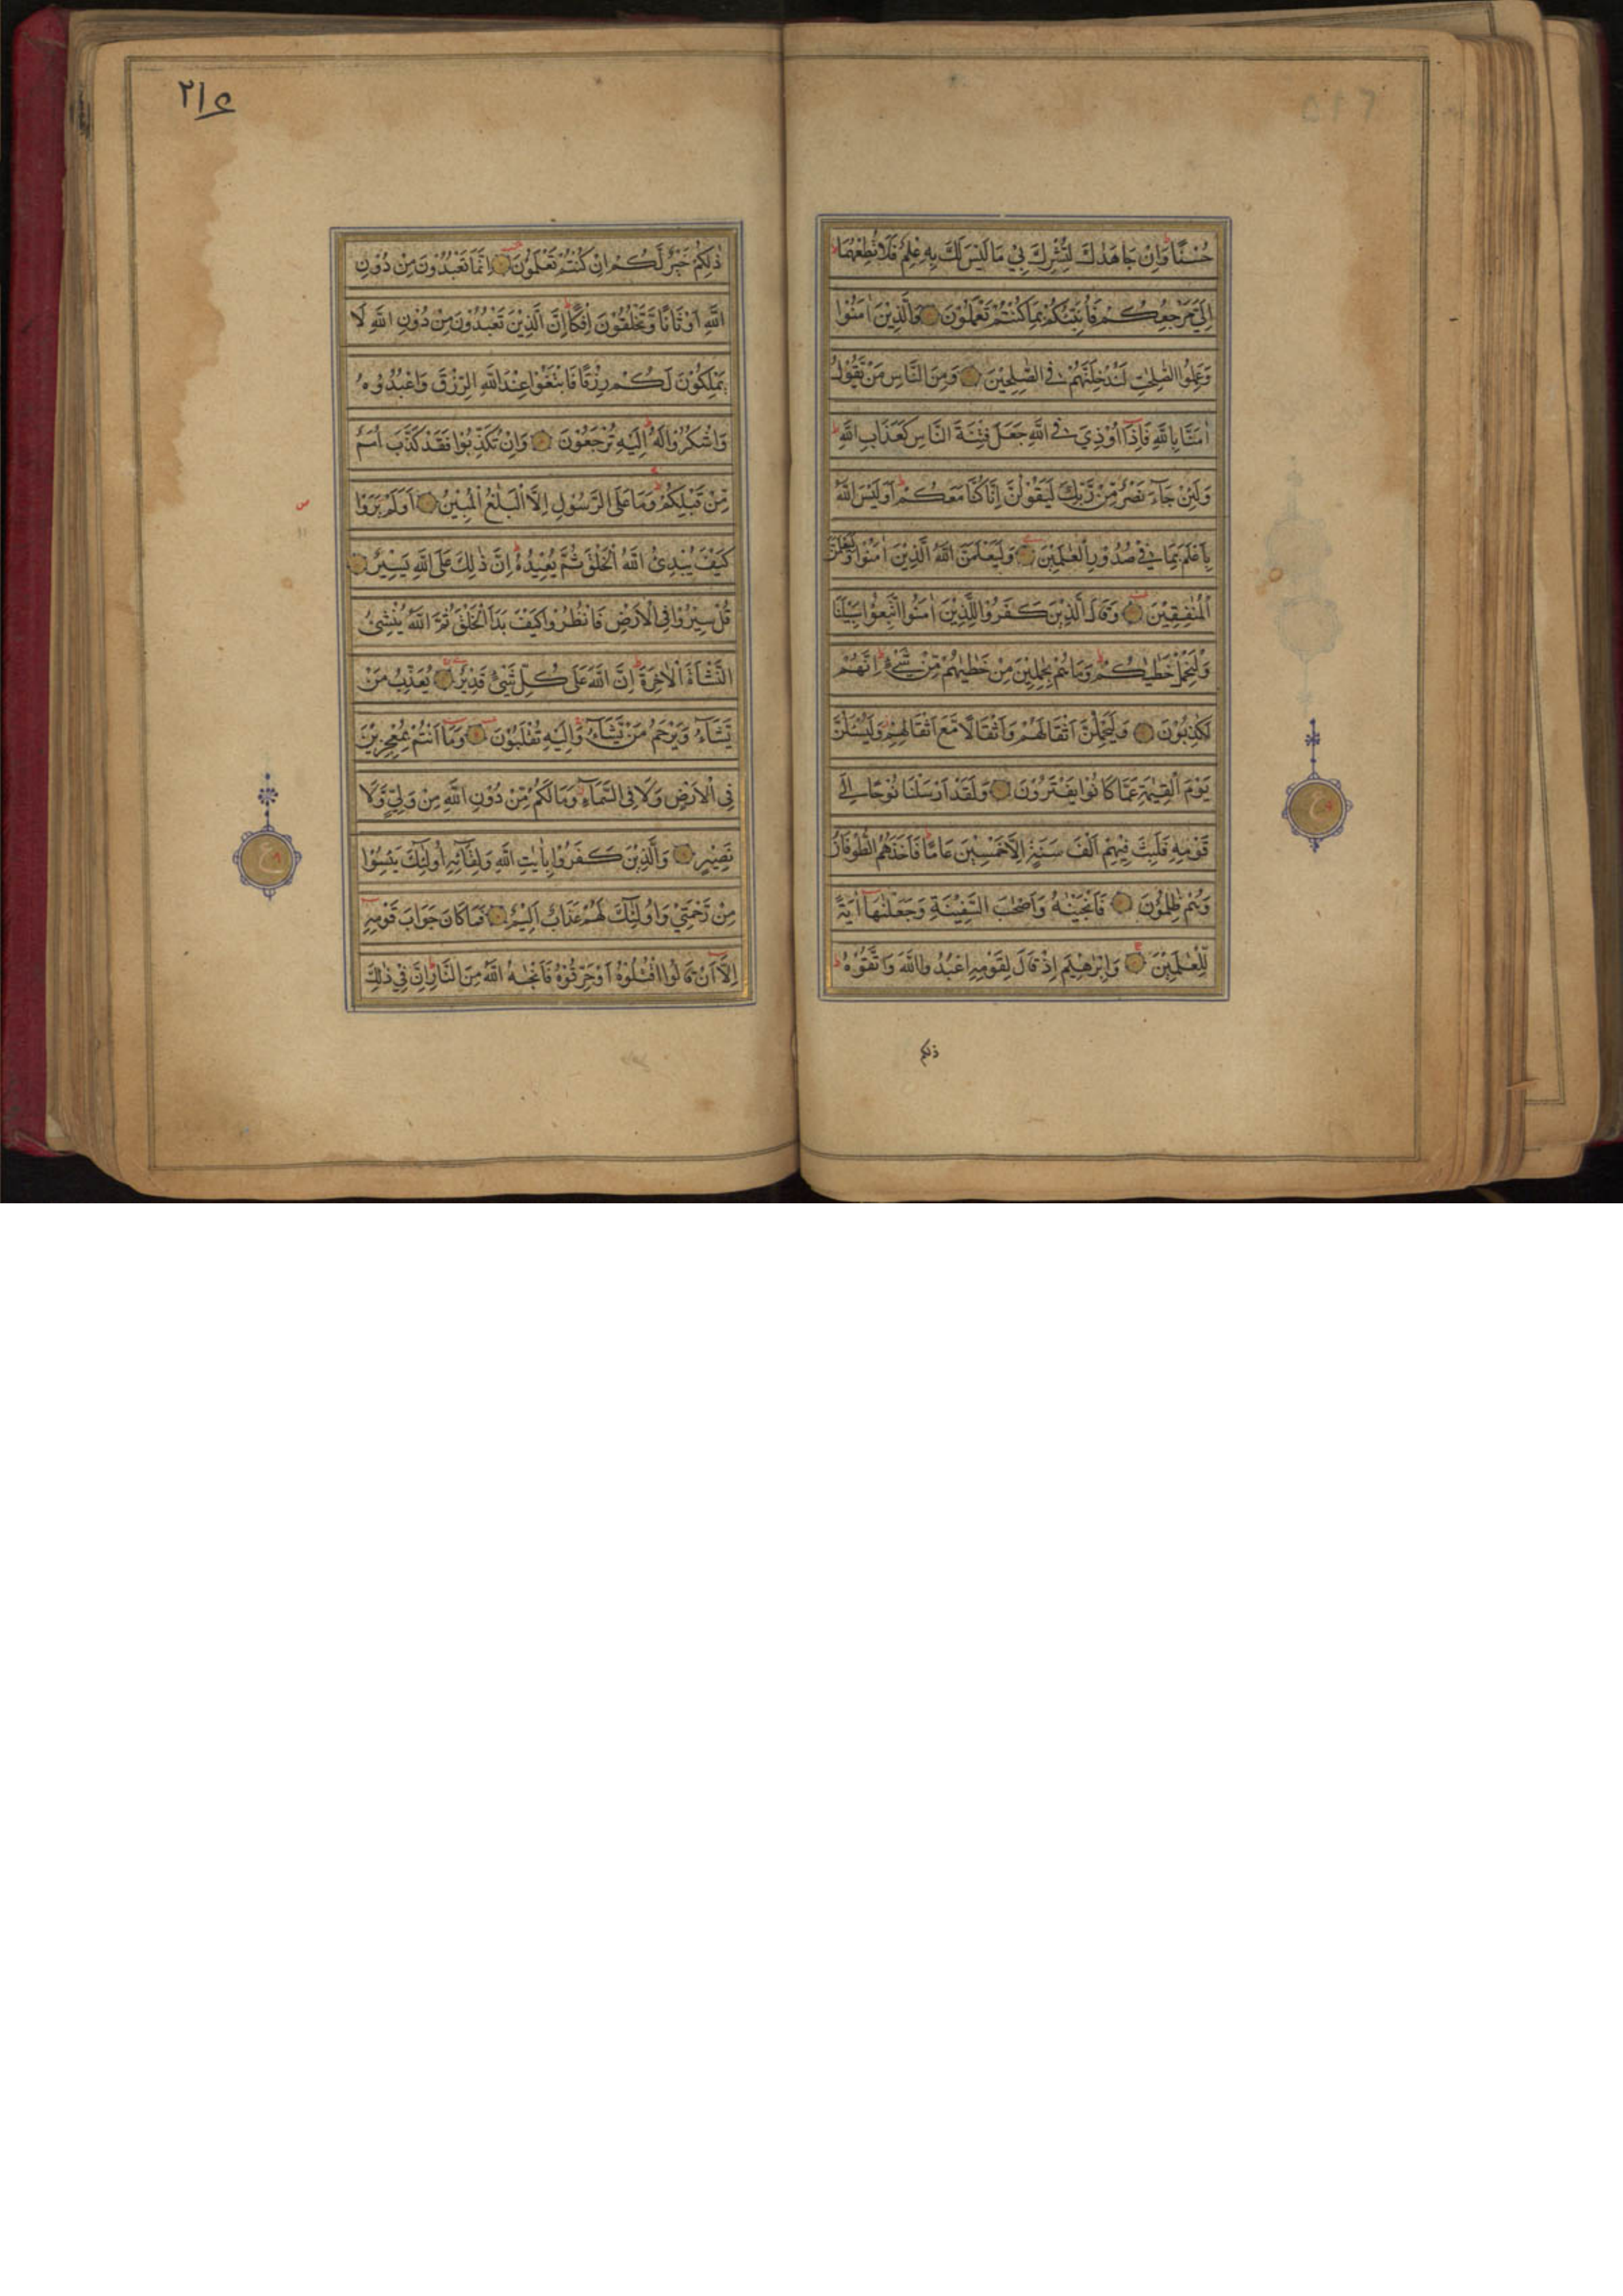 حُسْنًا وَاِنْ جَاهَدٰكَ لِتُشْرِكَ بِيْ مَا لَيْسَ لَكَ بِهٖ عِلْمٌ فَلَا تُطِعْهُمَا
اِلَيَّ مَرْجِعُكُمْ فَاُنَبِّئُكُمْ بِمَا كُنْتُمْ تَعْمَلُوْنَ وَالَّذِيْنَ اٰمَنُوْا
وَعَمِلُوا الصّٰلِحٰتِ لَنُدْخِلَنَّهُمْ فِي الصّٰلِحِيْنَ وَمِنَ النَّاسِ مَنْ يَّقُوْلُ
اٰمَنَّا بِاللّٰهِ فَاِذَا اُوْذِيَ فِي اللّٰهِ جَعَلَ فِتْنَةَ النَّاسِ كَعَذَابِ اللّٰهِ
وَلَئِنْ جَآءَ نَصْرٌ مِّنْ رَّبِّكَ لَيَقُوْلُنَّ اِنَّا كُنَّا مَعَكُمْ اَوَلَيْسَ اللّٰهُ
بِاَعْلَمَ بِمَا فِيْ صُدُوْرِ الْعٰلَمِيْنَ وَلَيَعْلَمَنَّ اللّٰهُ الَّذِيْنَ اٰمَنُوْا وَلَيَعْلَمَنَّ
الْمُنٰفِقِيْنَ وَقَالَ الَّذِيْنَ كَفَرُوْا لِلَّذِيْنَ اٰمَنُوا اتَّبِعُوْا سَبِيْلَنَا
وَلْنَحْمِلْ خَطٰيٰكُمْ وَمَا هُمْ بِحٰمِلِيْنَ مِنْ خَطٰيٰهُمْ مِّنْ شَيْءٍ اِنَّهُمْ
لَكٰذِبُوْنَ وَلَيَحْمِلُنَّ اَثْقَالَهُمْ وَاَثْقَالًا مَّعَ اَثْقَالِهِمْ وَلَيُسْـَٔلُنَّ
يَوْمَ الْقِيٰمَةِ عَمَّا كَانُوْا يَفْتَرُوْنَ وَلَقَدْ اَرْسَلْنَا نُوْحًا اِلٰى
قَوْمِهٖ فَلَبِثَ فِيْهِمْ اَلْفَ سَنَةٍ اِلَّا خَمْسِيْنَ عَامًا فَاَخَذَهُمُ الطُّوْفَانُ
وَهُمْ ظٰلِمُوْنَ فَاَنْجَيْنٰهُ وَاَصْحٰبَ السَّفِيْنَةِ وَجَعَلْنٰهَآ اٰيَةً
لِّلْعٰلَمِيْنَ وَاِبْرٰهِيْمَ اِذْ قَالَ لِقَوْمِهِ اعْبُدُوا اللّٰهَ وَاتَّقُوْهُ
ذلكم
٢١٤
ذٰلِكُمْ خَيْرٌ لَّكُمْ اِنْ كُنْتُمْ تَعْلَمُوْنَ اِنَّمَا تَعْبُدُوْنَ مِنْ دُوْنِ
اللّٰهِ اَوْثَانًا وَّتَخْلُقُوْنَ اِفْكًا اِنَّ الَّذِيْنَ تَعْبُدُوْنَ مِنْ دُوْنِ اللّٰهِ لَا
يَمْلِكُوْنَ لَكُمْ رِزْقًا فَابْتَغُوْا عِنْدَ اللّٰهِ الرِّزْقَ وَاعْبُدُوْهُ
وَاشْكُرُوْا لَهٗ اِلَيْهِ تُرْجَعُوْنَ وَاِنْ تُكَذِّبُوْا فَقَدْ كَذَّبَ اُمَمٌ
مِّنْ قَبْلِكُمْ وَمَا عَلَى الرَّسُوْلِ اِلَّا الْبَلٰغُ الْمُبِيْنُ اَوَلَمْ يَرَوْا
كَيْفَ يُبْدِئُ اللّٰهُ الْخَلْقَ ثُمَّ يُعِيْدُهٗ اِنَّ ذٰلِكَ عَلَى اللّٰهِ يَسِيْرٌ
قُلْ سِيْرُوْا فِي الْاَرْضِ فَانْظُرُوْا كَيْفَ بَدَاَ الْخَلْقَ ثُمَّ اللّٰهُ يُنْشِئُ
النَّشْاَةَ الْاٰخِرَةَ اِنَّ اللّٰهَ عَلٰى كُلِّ شَيْءٍ قَدِيْرٌ يُعَذِّبُ مَنْ
يَّشَآءُ وَيَرْحَمُ مَنْ يَّشَآءُ وَاِلَيْهِ تُقْلَبُوْنَ وَمَآ اَنْتُمْ بِمُعْجِزِيْنَ
فِي الْاَرْضِ وَلَا فِي السَّمَآءِ وَمَا لَكُمْ مِّنْ دُوْنِ اللّٰهِ مِنْ وَّلِيٍّ وَّلَا
نَصِيْرٍ وَالَّذِيْنَ كَفَرُوْا بِاٰيٰتِ اللّٰهِ وَلِقَآئِهٖٓ اُولٰٓئِكَ يَئِسُوْا
مِنْ رَّحْمَتِيْ وَاُولٰٓئِكَ لَهُمْ عَذَابٌ اَلِيْمٌ فَمَا كَانَ جَوَابَ قَوْمِهٖٓ
اِلَّآ اَنْ قَالُوا اقْتُلُوْهُ اَوْ حَرِّقُوْهُ فَاَنْجٰىهُ اللّٰهُ مِنَ النَّارِ اِنَّ فِيْ ذٰلِكَ